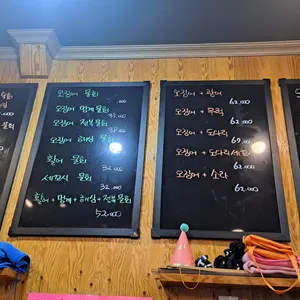 오징어 물회
,000
오징어 + 멍게 물회
오징어 + 전복물회
오징어 + 해삼 물회
활어 물회
32.000
세꼬시 물회
32.000
활어 + 멍게 + 해삼 + 전복물회
52.000
오징어 + 광어
62.000
오징어 + 우럭
62.000
오징어 + 도다리
오징어 + 도다리세꼬시
62.000
오징어 + 소라
62.000
물회